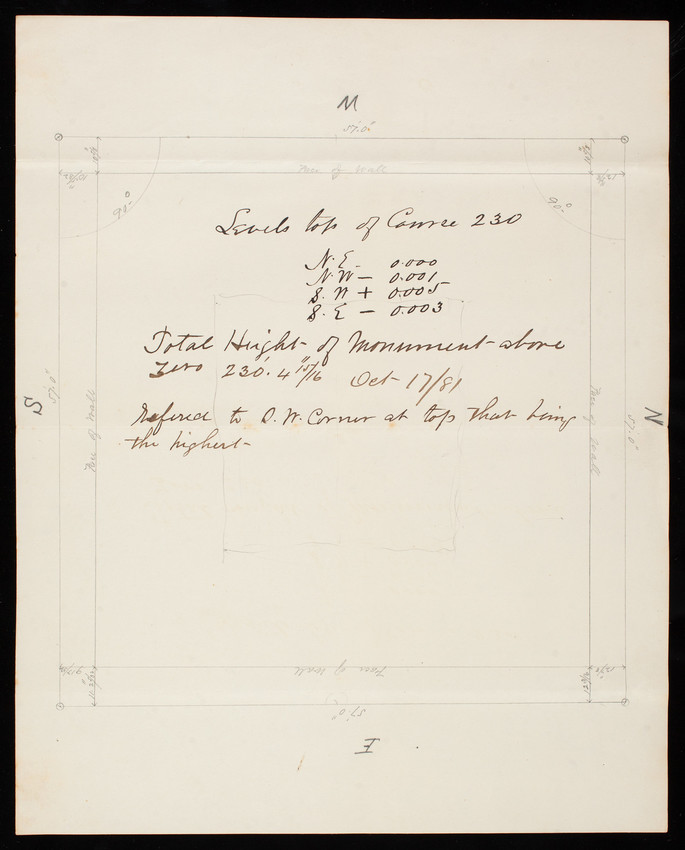 W
57.0"
Face of Wall
90° 90°
Levels top of Course 230
N. E. 0.000
N. W — 0.001
S. W + 0.005
S. E — 0.003
Total Height of Monument above
Zero 230'. 4 15/16" Oct 17/81
Refered to S. W. Corner at top that being
the highest
S
57.0"
Face of Wall
Face of Wall
57.0"
N
Face of Wall
57.0"
E